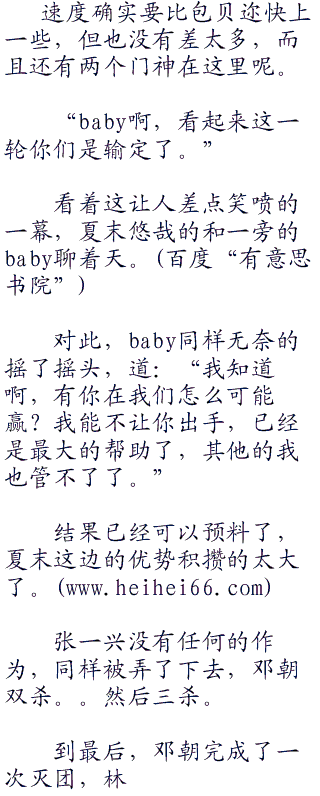 速度确实要比包贝迩快上
一些，但也没有差太多，而
且还有两个门神在这里呢。
“baby啊，看起来这一
轮你们是输定了。”
看着这让人差点笑喷的
一幕，夏末悠哉的和一旁的
baby聊着天。(百度“有意思
书院”)
对此，baby同样无奈的
摇了摇头，道：“我知道
啊，有你在我们怎么可能
赢？我能不让你出手，已经
是最大的帮助了，其他的我
也管不了了。”
结果已经可以预料了，
夏末这边的优势积攒的太大
了。(www.heihei66.com)
张一兴没有任何的作
为，同样被弄了下去，邓朝
双杀。。然后三杀。
到最后，邓朝完成了一
次灭团，林